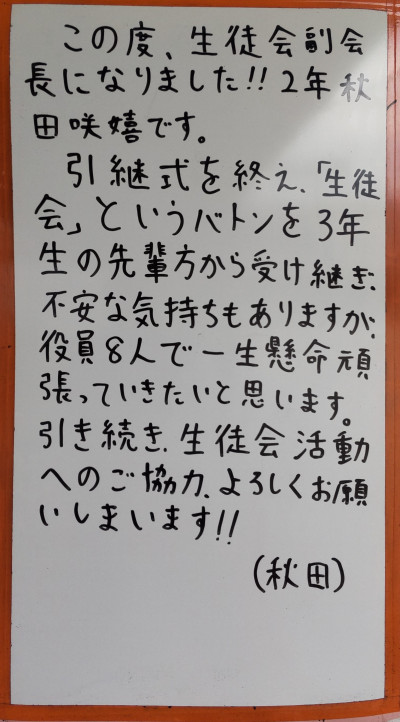 この度、生徒会副会
長になりました!!2年秋
田咲嬉です。
引継式を終え、「生徒
会」というバトンを3年
生の先輩方から受け継ぎ、
不安な気持ちもありますが、
役員8人で一生懸命頑
張っていきたいと思います。
引き続き、生徒会活動
へのご協力、よろしくお願
いしまいます!!
(秋田)